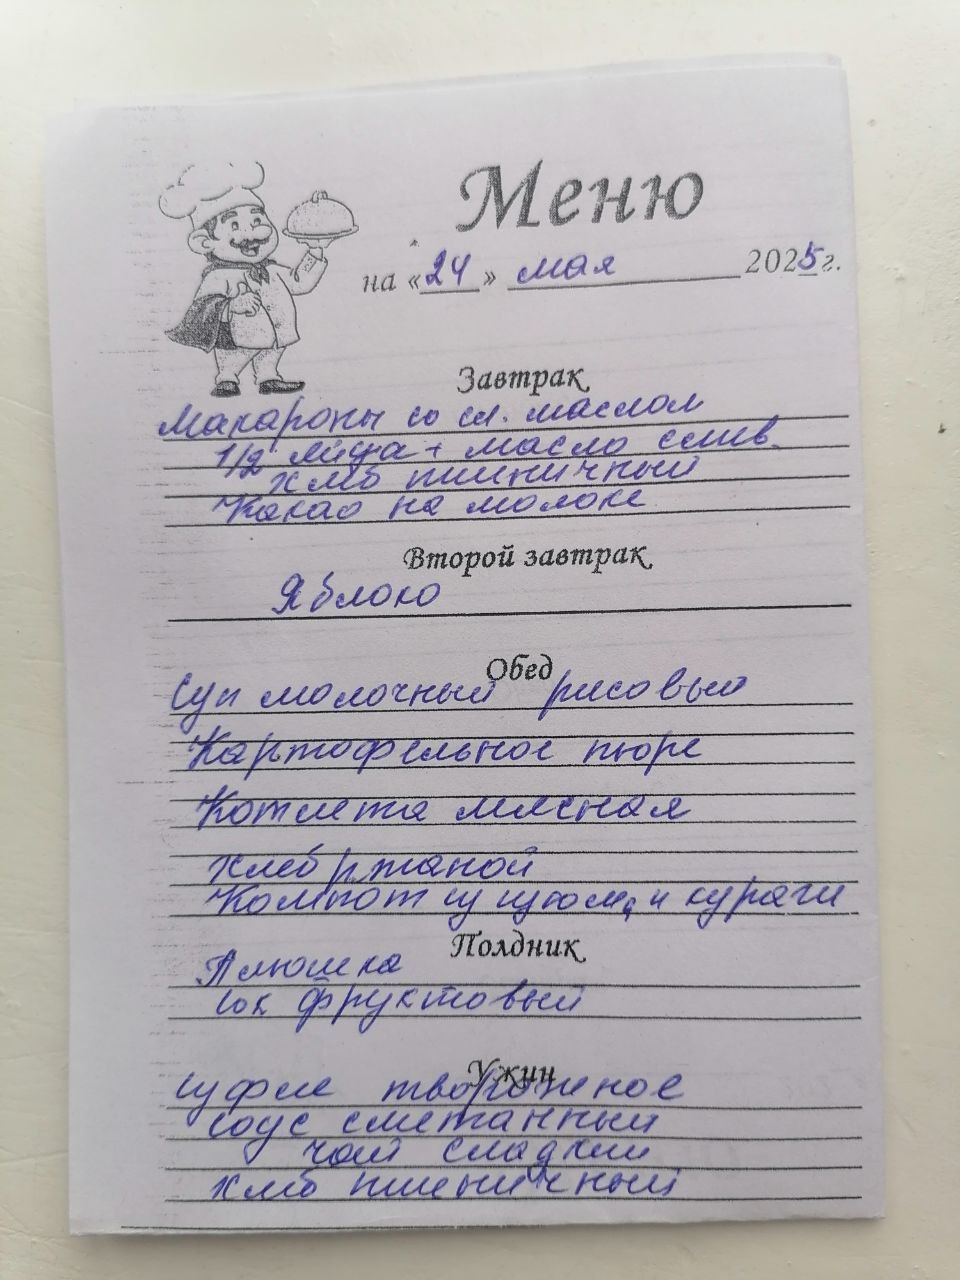 Меню
на «24» мая 2025г.
Завтрак
Макароны со сл. маслом
1/2 яйца + масло слив.
хлеб пшеничный
Какао на молоке
Второй завтрак
Яблоко
Обед
Суп молочный рисовый
Картофельное пюре
Котлета мясная
хлеб ржаной
Компот из изюма и кураги
Полдник
Плюшка
Сок фруктовый
Ужин
Суфле творожное
соус сметанный
чай сладкий
хлеб пшеничный